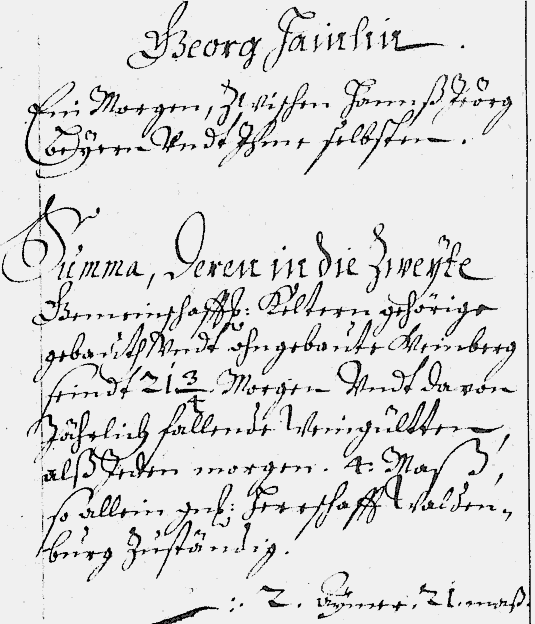 Georg Jaimlin.
Ein Morgen, Zwischen Hannß Jörg
Beyern Undt Ihme selbsten.
Summa, deren in die Zweyte
Gemeinschafft: Keltern gehörige
gebauth Undt ohngebaute Weinberg
seindt 21 3/4 Morgen Undt davon
Jährlich fallende Weingültten,
alß Jeden morgen. 4: Maß,
so allein gn: Herrschafft Walden-
burg Zuständig.
:. 2. Aymer. 21. maß.